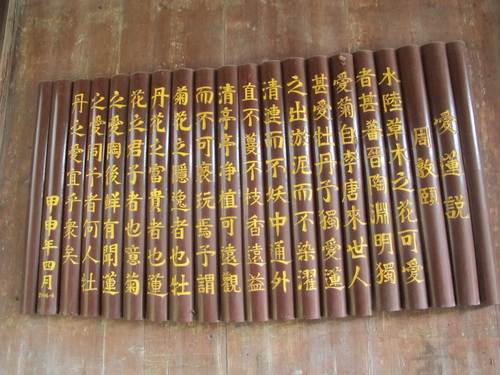 愛蓮説
周敦頤
水陸草木之花可愛
者甚蕃晉陶淵明獨
愛菊自李唐來世人
甚愛牡丹予獨愛蓮
之出淤泥而不染濯
清漣而不妖中通外
直不蔓不枝香遠益
清亭亭净植可遠觀
而不可褻玩焉予謂
菊花之隱逸者也牡
丹花之富貴者也蓮
花之君子者也意菊
之愛陶後鮮有聞蓮
之愛同予者何人牡
丹之愛宜乎衆矣
甲申年四月